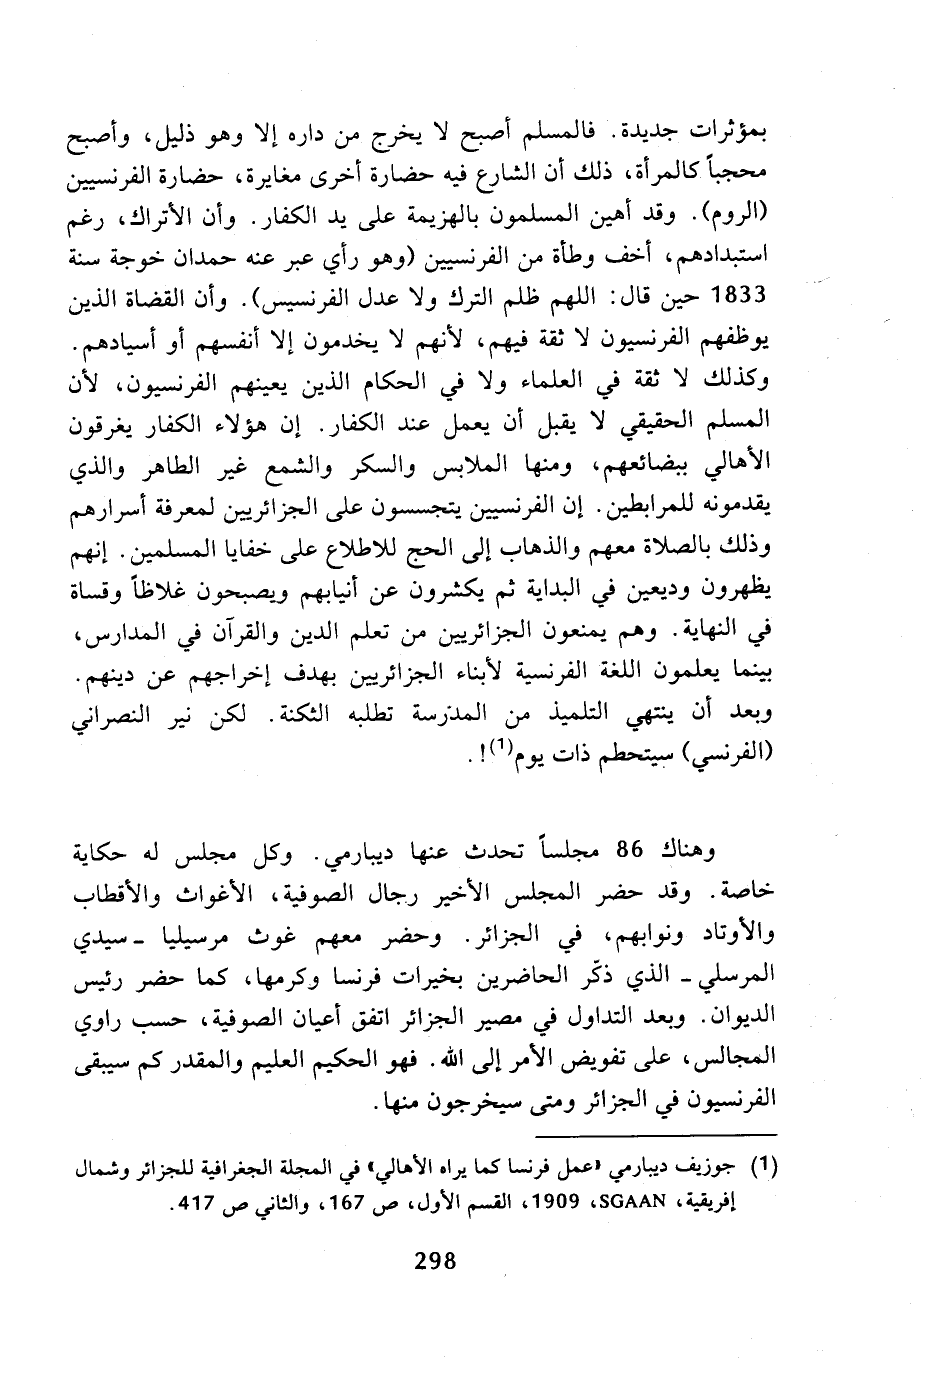 بمؤثرات جديدة. فالمسلم أصبح لا يخرج من داره إلا وهو ذليل، وأصبح
محجباً كالمرأة، ذلك أن الشارع فيه حضارة أخرى مغايرة، حضارة الفرنسيين
(الروم). وقد أهين المسلمون بالهزيمة على يد الكفار. وأن الأتراك، رغم
استبدادهم، أخف وطأة من الفرنسيين (وهو رأي عبر عنه حمدان خوجة سنة
1833 حين قال: اللهم ظلم الترك ولا عدل الفرنسيس). وأن القضاة الذين
يوظفهم الفرنسيون لا ثقة فيهم، لأنهم لا يخدمون إلا أنفسهم أو أسيادهم.
وكذلك لا ثقة في العلماء ولا في الحكام الذين يعينهم الفرنسيون، لأن
المسلم الحقيقي لا يقبل أن يعمل عند الكفار. إن هؤلاء الكفار يغرقون
الأهالي ببضائعهم، ومنها الملابس والسكر والشمع غير الطاهر والذي
يقدمونه للمرابطين. إن الفرنسيين يتجسسون على الجزائريين لمعرفة أسرارهم
وذلك بالصلاة معهم والذهاب إلى الحج للاطلاع على خفايا المسلمين. إنهم
يظهرون وديعين في البداية ثم يكشرون عن أنيابهم ويصبحون غلاظاً وقساة
في النهاية. وهم يمنعون الجزائريين من تعلم الدين والقرآن في المدارس،
بينما يعلمون اللغة الفرنسية لأبناء الجزائريين بهدف إخراجهم عن دينهم.
وبعد أن ينتهي التلميذ من المدرسة تطلبه الثكنة. لكن نير النصراني
(الفرنسي) سيتحطم ذات يوم(1)!.
وهناك 86 مجلساً تحدث عنها ديبارمي. وكل مجلس له حكاية
خاصة. وقد حضر المجلس الأخير رجال الصوفية، الأغواث والأقطاب
والأوتاد ونوابهم، في الجزائر. وحضر معهم غوث مرسيليا - سيدي
المرسلي - الذي ذكّر الحاضرين بخيرات فرنسا وكرمها، كما حضر رئيس
الديوان. وبعد التداول في مصير الجزائر اتفق أعيان الصوفية، حسب راوي
المجالس، على تفويض الأمر إلى الله. فهو الحكيم العليم والمقدر كم سيبقى
الفرنسيون في الجزائر ومتى سيخرجون منها.
(1) جوزيف ديبارمي «عمل فرنسا كما يراه الأهالي» في المجلة الجغرافية للجزائر وشمال
إفريقية، SGAAN، 1909، القسم الأول، ص 167، والثاني ص 417.
298